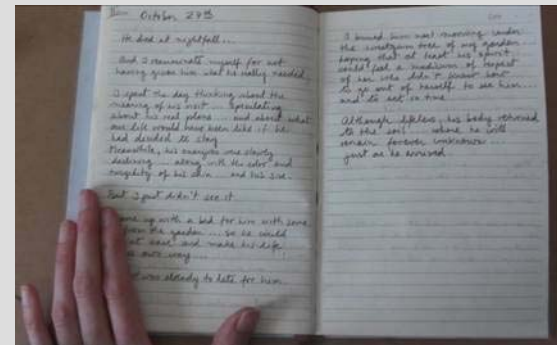 October 29th
He died at nightfall...
And I recriminate myself for not
having given him what he really needed.
I spent the day thinking about the
meaning of his visit... speculating
about his real plans... and about what
our life would have been like if he
had decided to stay
Meanwhile, his energies were slowly
declining... along with the color and
turgidity of his skin... and his size.
But I just didn't see it
came up with a bed for him with some
from the garden... so he could
at ease and make his life
own way...
was already to late for him.
I buried him next morning under
the sweetgum tree of my garden
hoping that at least his spirit
would feel a modicum of respect
of her who didn't know how
to go out of herself to see him...
and to act in time.
Although lifeless, his body returned
to the soil... where he will
remain forever unknown...
just as he arrived.